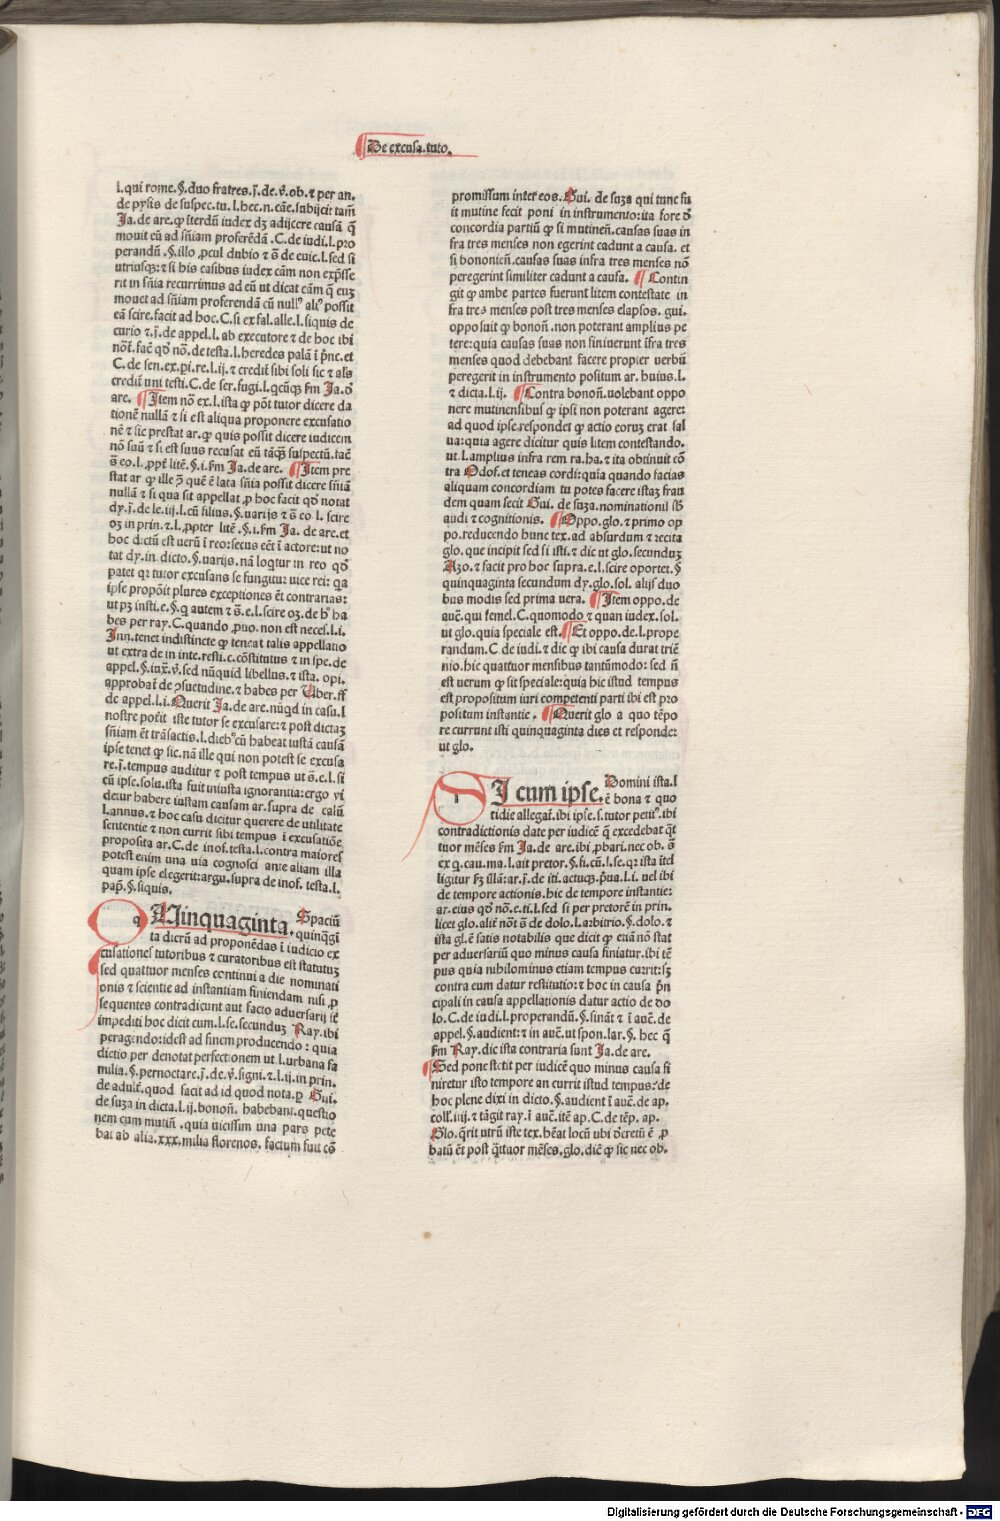 De excusa.tuto.
l.qui rome.§.duo fratres.j.de.v̄.ob.⁊ per an.
de pysis de suspec.tu.l.hec.n.cāe.subijcit tam̄
Ja.de are.ꝙ īterdū iudex dꝫ adijcere causā q̄
mouit eū ad sn̄iam proferēdā.C.de iudi.l.pro
perandū.§.illo ꝓcul dubio ⁊ s̄ de euic.l.sed si
utriusqꝫ:⁊ si his casibus iudex cām non exp̄sse
rit in sn̄ia recurrimus ad eū ut dicat cām q̄ euꝫ
mouet ad sn̄iam proferendā cū null⁹ ali⁹ possit
eā scire.facit ad hoc.C.si ex fal.alle.l.siquis de
curio ⁊.j.de appel.l.ab executore ⁊ de hoc ibi
nōt̄.facē qd̄ nō.de testa.l.heredes palā ī pn̄c.et
C.de sen.ex.pi.re.l.ij.⁊ credit̄ sibi soli sic ⁊ al̄s
credit̄ uni testi.C.de ser.fugi.l.qcūqꝫ ẜm Ja.d̄
are. ¶Item nō ex.l.ista ꝙ pōt tutor dicere da
tionē nullā ⁊ si est aliqua proponere excusatio
nē ⁊ sic prestat ar.ꝙ quis possit dicere iudicem
nō suū ⁊ si est suus recusat eū tāqꝫ suspectū.facē
s̄ eo.l.ꝓpt̄ litē.§.i.ẜm Ja.de are. ¶Item pre
stat ar ꝙ ille ɔ̄ quē ē lata sn̄ia possit dicere sn̄iā
nullā ⁊ si qua sit appellat ꝓ hoc facit qd̄ notat
dy.j.de le.iij.l.cū filius.§.uarijs ⁊ s̄ eo l.scire
oꝫ in prin.⁊.l.ꝓpter litē.§.i.ẜm Ja.de are.et
hoc dictū est uerū ī reo:secus eēt ī actore:ut no
tat dy.in dicto.§.uarijs.nā loqtur in reo qd̄
patet qꝛ tutor excusans se fungitur uice rei: qa
ipse propōit plures exceptiones ēt contrarias:
ut pꝫ insti.e.§.q autem ⁊ s̄.e.l.scire oꝫ.de h⁹ ha
bes per ray.C.quando ꝓuo.non est neces.l.i.
Inn.tenet indistincte ꝙ teneat talis appellatio
ut extra de in inte.resti.c.cōstitutus ⁊ in spe.de
appel.§.iux̄.v̄.sed nūquid libellus.⁊ ista opi.
approbat̄ de ɔsuetudine.⁊ habes per Uber.ff
de appel.l.i.Querit Ja.de are.nūqd in casu.l
nostre poterit iste tutor se excusare:⁊ post dictaꝫ
sn̄iam ēt trāsactis.l.dieb⁹cū habeat iustā causā
ipse tenet ꝙ sic.nā ille qui non potest se excusa
re.j̄.tempus auditur ⁊ post tempus ut s̄.e.l.si
cū ipse.solu.ista fuit iniusta ignorantia:ergo vi
detur habere iustam causam ar.supra de calū
l.annus.⁊ hoc casu dicitur querere de utilitate
sententie ⁊ non currit sibi tempus ī excusatiōe
proposita ar.C.de inof.testa.l.contra maiores
potest enim una via cognosci ante aliam illa
quam ipse elegerit:argu.supra de inof.testa.l.
pap̄.§.siquis.
q UInquaginta. Spaciū
quinqgī
ta dierū ad proponēdas ī iudicio ex
cusationes tutoribus ⁊ curatoribus est statutuꝫ
sed quattuor menses continui a die nominati
onis ⁊ scientie ad instantiam finiendam nisi ꝓ
sequentes contradicunt aut facto aduersarij it̄
impediti hoc dicit cum.l.se.secunduꝫ Ray.ibi
peragendo:idest ad finem producendo : quia
dictio per denotat perfectionem ut l.urbana fa
milia.§.pernoctare.j.de.v̄.signi.⁊ l.ij.in prin.
de adult̄.quod facit ad id quod nota.ꝑ Gui.
de suza in dicta.l.ij.bonoñ.habebant.questio
nem cum mutiñ.quia uicissim una pars pete
bat ab alia.xxx.milia florenos.factum fuit cō
promissum inter eos.Gui.de suza qui tunc fu
it mutine fecit poni in instrumento:ita fore d̄
concordia partiū ꝙ si mutineñ.causas suas in
fra tres menses non egerint cadunt a causa.et
si bononieñ.causas suas infra tres menses nō
peregerint similiter cadunt a causa. ¶Contin
git ꝙ ambe partes fuerunt litem contestate in
fra tres menses post tres menses elapsos.gui.
opposuit ꝙ bonoñ.non poterant amplius pe
tere:quia causas suas non finiuerunt īfra tres
menses quod debebant facere propter uerbū
peregerit in instrumento positum ar.huius.l.
⁊ dicta.l.ij. ¶Contra bonoñ.uolebant oppo
nere mutinensibus ꝙ ipsi non poterant agere:
ad quod ipse respondet ꝙ actio eoruꝫ erat sal
ua:quia agere dicitur quis litem contestando.
ut.l.amplius infra rem ra.ha.⁊ ita obtinuit cō
tra Odof.et teneas cordi:quia quando facias
aliquam concordiam tu potes facere istaꝫ frau
dem quam fecit Gui.de suza.nominationis sb̄
audi ⁊ cognitionis. ¶Oppo.glo.⁊ primo op
po.reducendo hunc tex.ad absurdum ⁊ recita
glo.que incipit sed si isti.⁊ dic ut glo.secunduꝫ
Azo.⁊ facit pro hoc supra.e.l.scire oportet.§
quinquaginta secundum dy.glo.sol.alijs duo
bus modis sed prima uera. ¶Item oppo.de
auc̄.qui semel.C.quomodo ⁊ quan iudex.sol.
ut glo.quia speciale est. ¶Et oppo.de.l.prope
randum.C de iudi.⁊ dic ꝙ ibi causa durat triē
nio.hic quattuor mensibus tantūmodo: sed ñ
est uerum ꝙ sit speciale:quia hic istud tempus
est propositum iuri competenti parti ibi est pro
positum instantie. ¶Querit glo a quo tēpo
re currunt isti quinquaginta dies et responde:
ut glo.
SI cum ipse. Domini ista.l
ē bona ⁊ quo
tidie allegat̄.ibi ipse.s.tutor petit⁹.ibi
contradictionis date per iudicē q̄ excedebat q̄t
tuor mēses ẜm Ja.de are.ibi ꝓbari.nec ob.s̄
ex q.cau.ma.l.ait pretor.§.si.cū.l.se.qꝛ ista ītel
ligitur ẜꝫ illā:ar.j.de iti.actuqꝫ.p̄ua.l.i. uel ibi
de tempore actionis.hic de tempore instantie:
ar.eius qd̄ nō.e.ti.l.sed si per pretorē in prin.
licet glo.alit̄ nōt̄ s̄ de dolo.l.arbitrio.§.dolo.⁊
ista gl.ē satis notabilis que dicit ꝙ etiā nō stat
per aduersariū quo minus causa finiatur.ibi tē
pus quia nihilominus etiam tempus currit:sꝫ
contra eum datur restitutio:⁊ hoc in causa p̄n
cipali in causa appellationis datur actio de do
lo.C.de iudi.l.properandū.§.sināt ⁊ ī auc̄.de
appel.§.audient:⁊ in auc̄.ut spon.lar.§.hec q̄
ẜm Ray.dic ista contraria sunt Ja.de are.
¶Sed pone stetit per iudicē quo minus causa fi
niretur isto tempore an currit istud tempus:⁊ de
hoc plene dixi in dicto.§.audient ī auc̄.de ap.
coll̄.iiij.⁊ tāgit ray.ī auc̄.itē ap.C.de tēp.ap.
Glo.q̄rit utrū iste tex.hēat locū ubi d̄cretū ē ꝓ
batū ēt post q̄ttuor mēses.glo.dic̄ ꝙ sic nec ob.
Digitalisierung gefördert durch die Deutsche Forschungsgemeinschaft - DFG